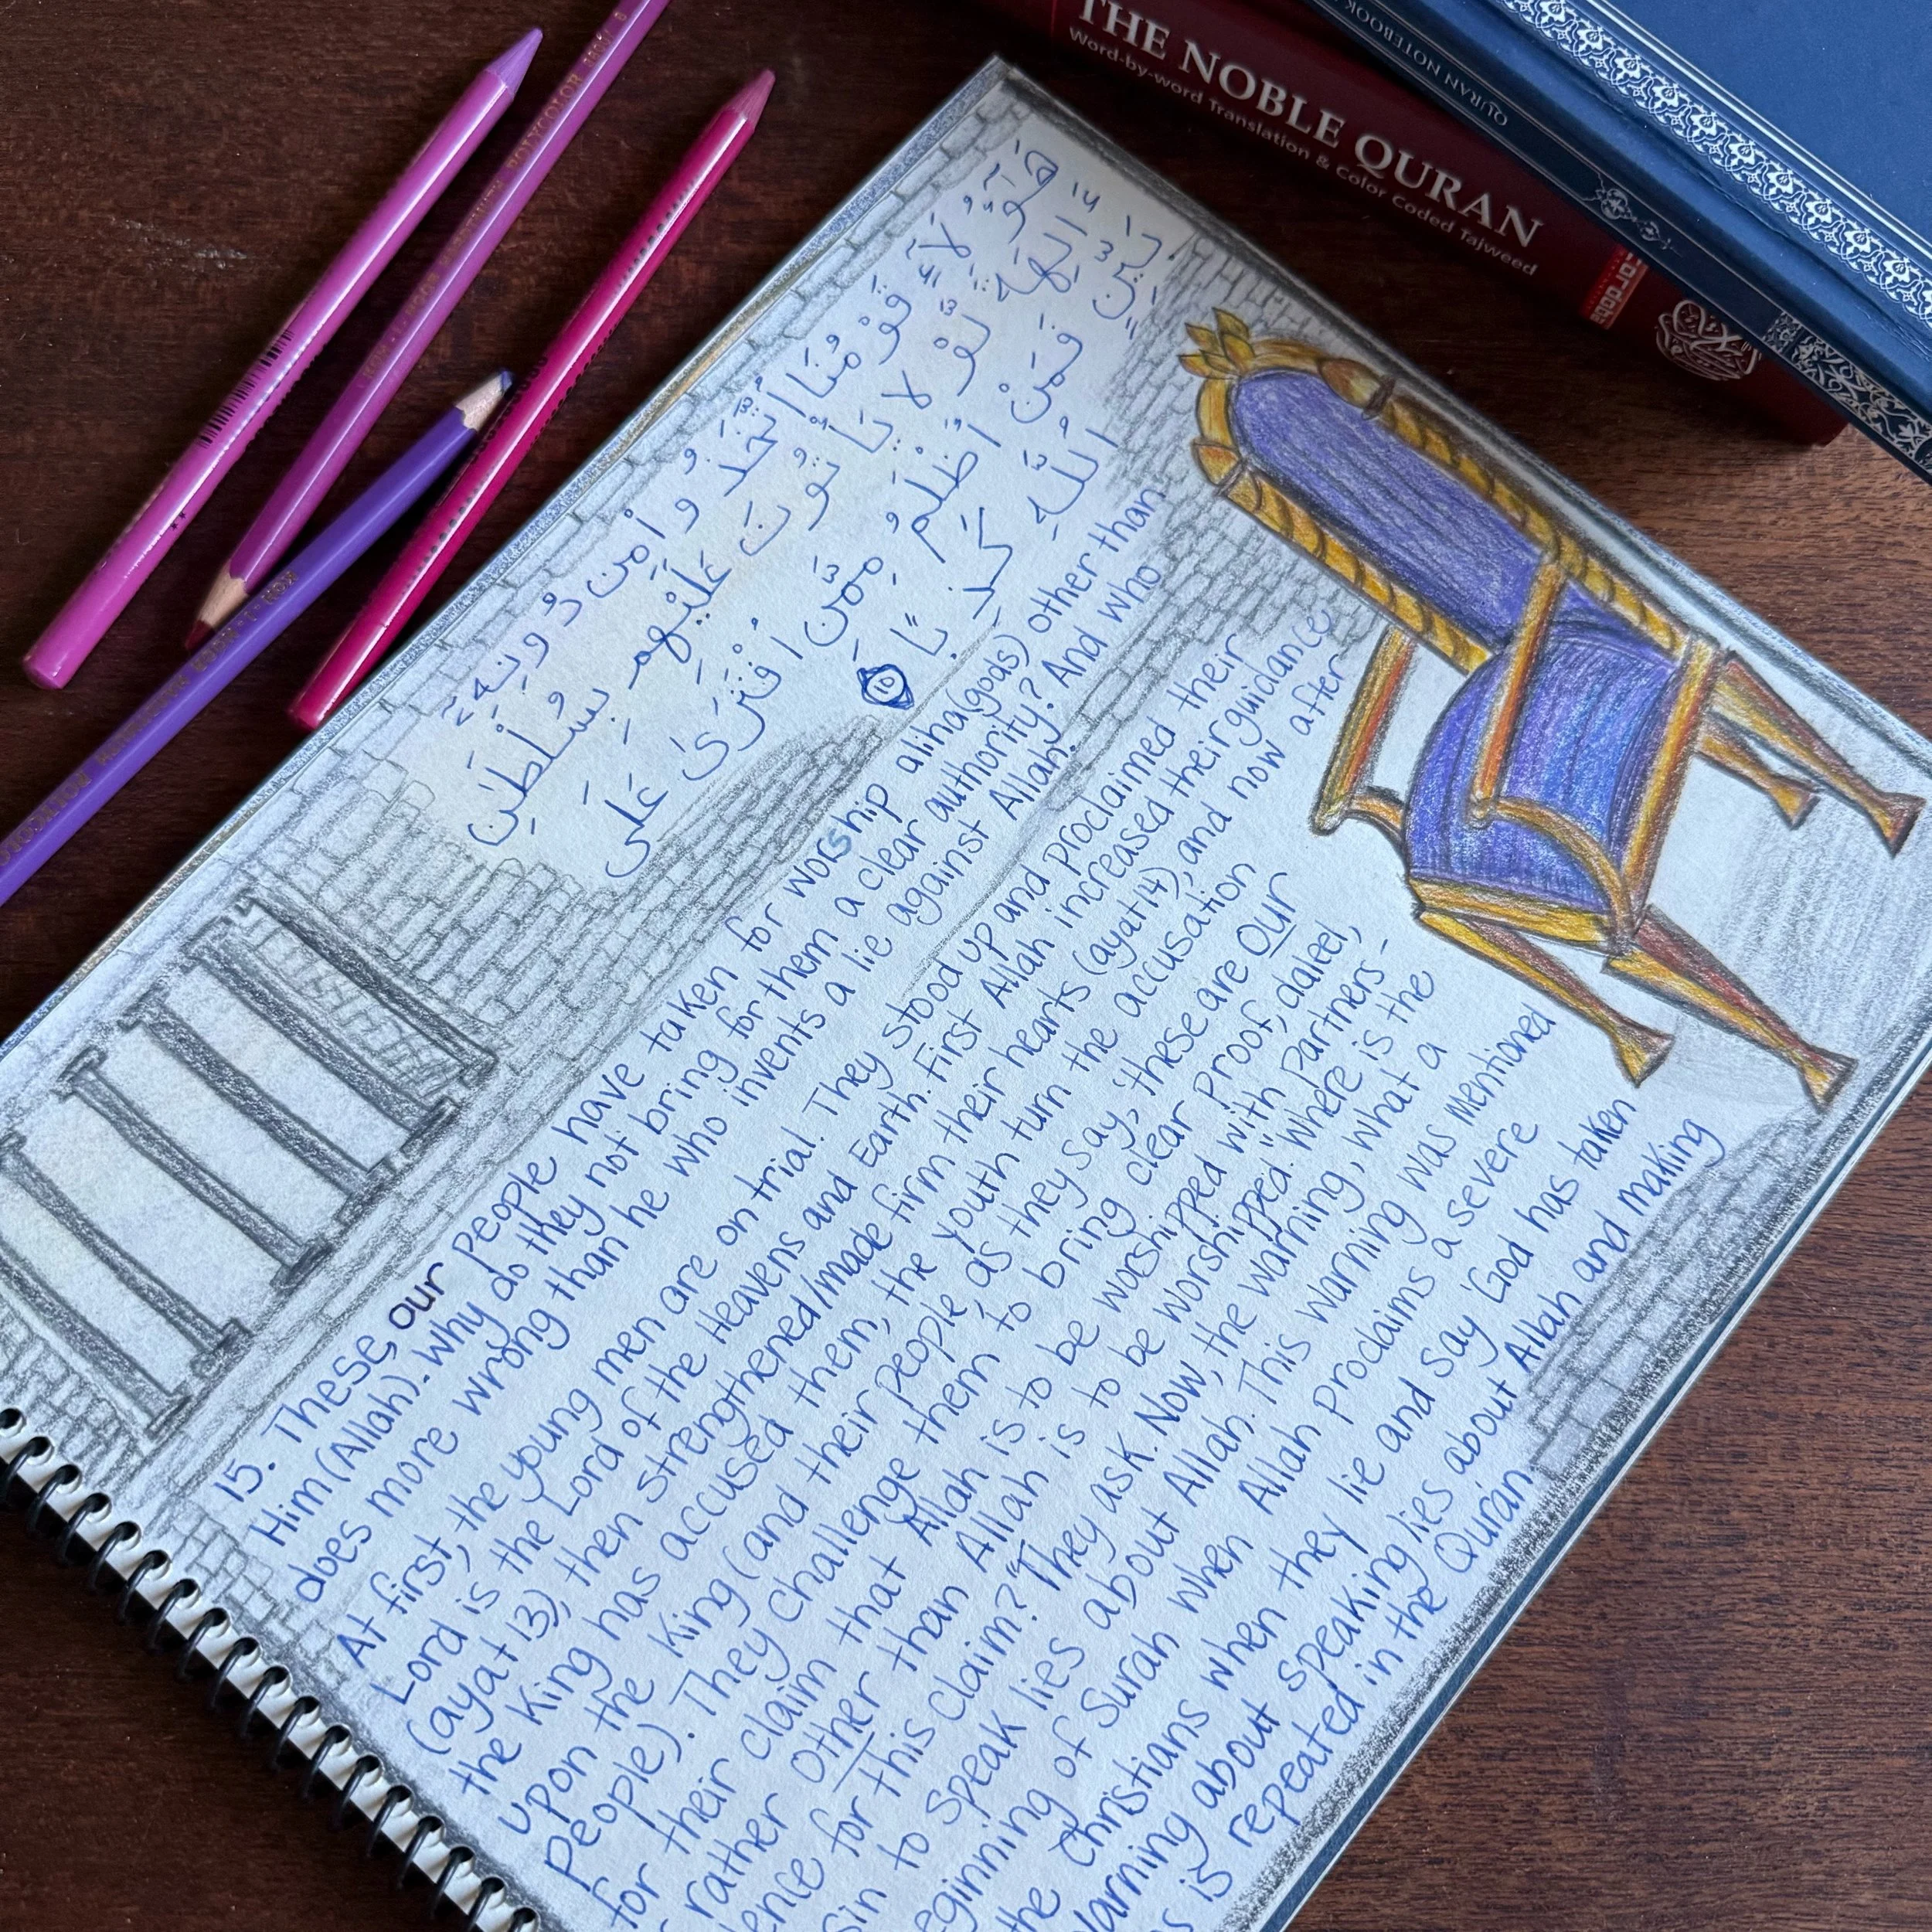 THE NOBLE QURAN
Word-by-word Translation & Color Coded Tajweed
QURAN NOTEBOOK
POLYCOLOR
هَٰٓؤُلَآءِ قَوْمُنَا ٱتَّخَذُوا۟ مِن دُونِهِۦٓ
ءَالِهَةً لَّوْ لَا يَأْتُونَ عَلَيْهِم بِسُلْطَٰنٍ
بَيِّنٍ فَمَنْ أَظْلَمُ مِمَّنِ ٱفْتَرَىٰ عَلَى
ٱللَّهِ كَذِبًا
15. These, our people have taken for worship aliha(gods) other than
Him (Allah). Why do they not bring for them a clear authority? And who
does more wrong than he who invents a lie against Allah.
At first, the young men are on trial. They stood up and proclaimed their
Lord is the Lord of the Heavens and Earth. First Allah increased their guidance
(ayat 13), then strengthened/made firm their hearts (ayat 14), and now after
the King has accused them, the youth turn the accusation
upon the King (and their people, as they say, 'these are Our
people). They challenge them to bring clear Proof, daleel,
for their claim that Allah is to be worshipped with Partners-
rather Other than Allah is to be worshipped. "Where is the
for this claim?" They ask. Now, the warning, what a
sin to speak lies about Allah. This warning was mentioned
of Surah when Allah proclaims a severe
the Christians when they lie and say 'God has taken
about speaking lies about Allah and making
is repeated in the Quran.